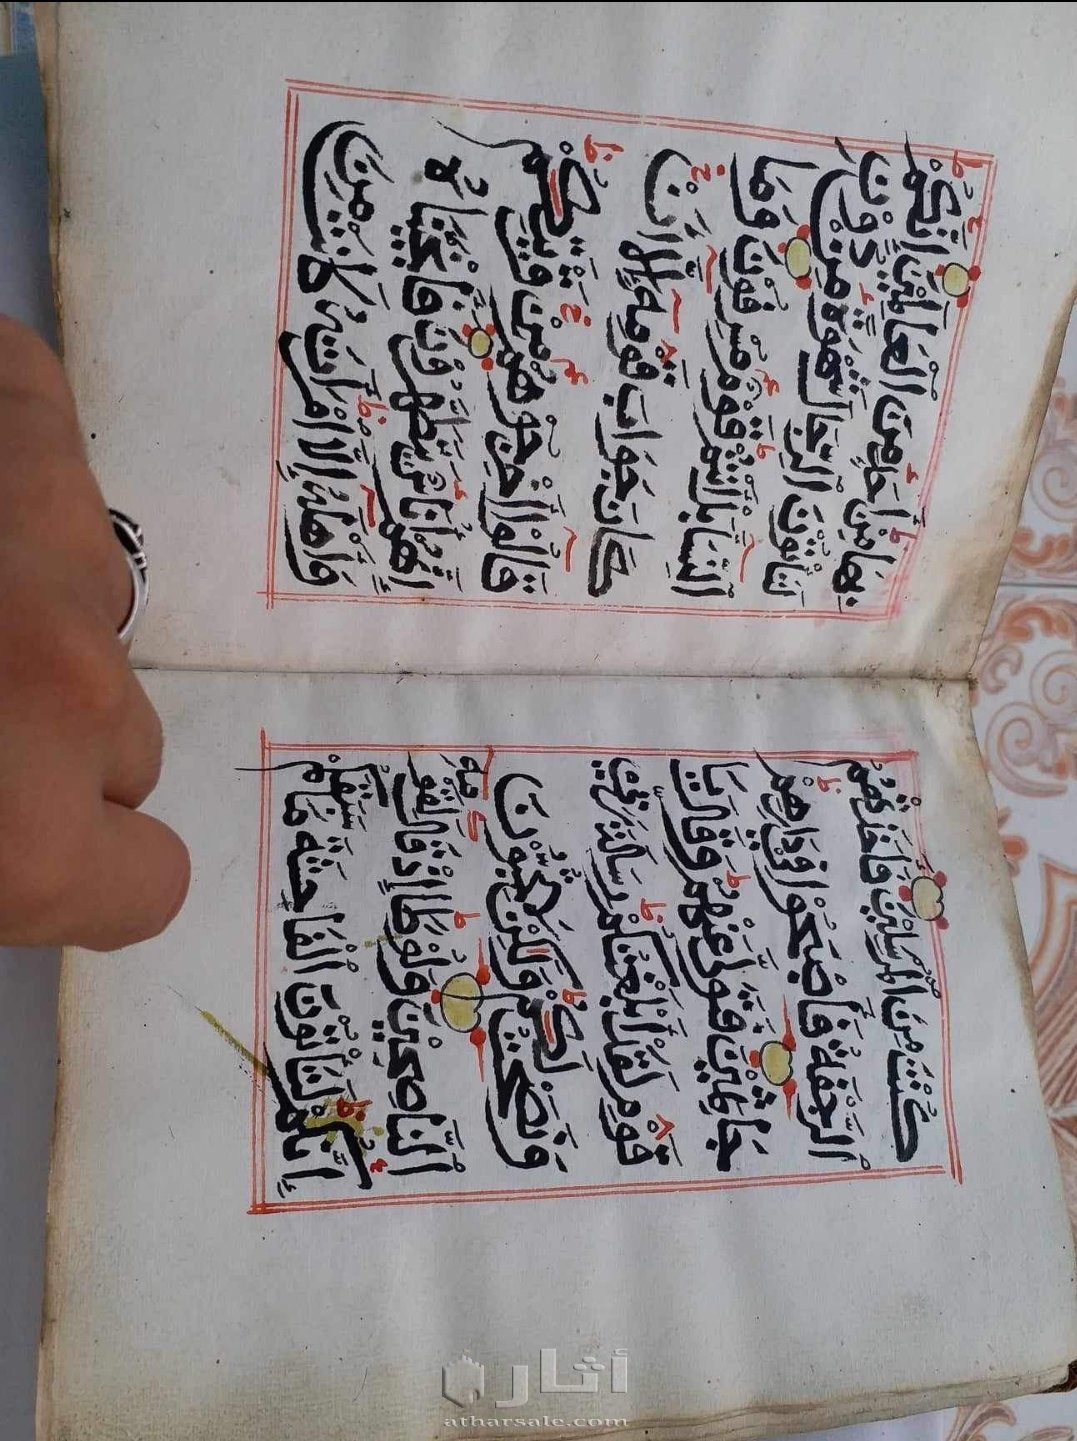 كُنْتَ مِنَ الْمُرْسَلِينَ فَأَخَذَتْهُمُ
الرَّجْفَةُ فَأَصْبَحُوا فِي دَارِهِمْ
جَاثِمِينَ فَتَوَلَّى عَنْهُمْ وَقَالَ يَا
قَوْمِ لَقَدْ أَبْلَغْتُكُمْ رِسَالَةَ رَبِّي
وَنَصَحْتُ لَكُمْ وَلَكِنْ لَا تُحِبُّونَ
النَّاصِحِينَ وَلُوطًا إِذْ قَالَ لِقَوْمِهِ
إِنَّكُمْ لَتَأْتُونَ الْفَاحِشَةَ مَا سَبَقَكُمْ
بِهَا مِنْ أَحَدٍ مِنَ الْعَالَمِينَ إِنَّكُمْ
تَأْتُونَ الرِّجَالَ شَهْوَةً مِنْ دُونِ
النِّسَاءِ بَلْ أَنْتُمْ قَوْمٌ مُسْرِفُونَ وَمَا
كَانَ جَوَابَ قَوْمِهِ إِلَّا أَنْ
قَالُوا أَخْرِجُوهُمْ مِنْ قَرْيَتِكُمْ
إِنَّهُمْ أُنَاسٌ يَتَطَهَّرُونَ فَأَنْجَيْنَاهُ
وَأَهْلَهُ إِلَّا امْرَأَتَهُ كَانَتْ مِنَ
أثار
atharsale.com